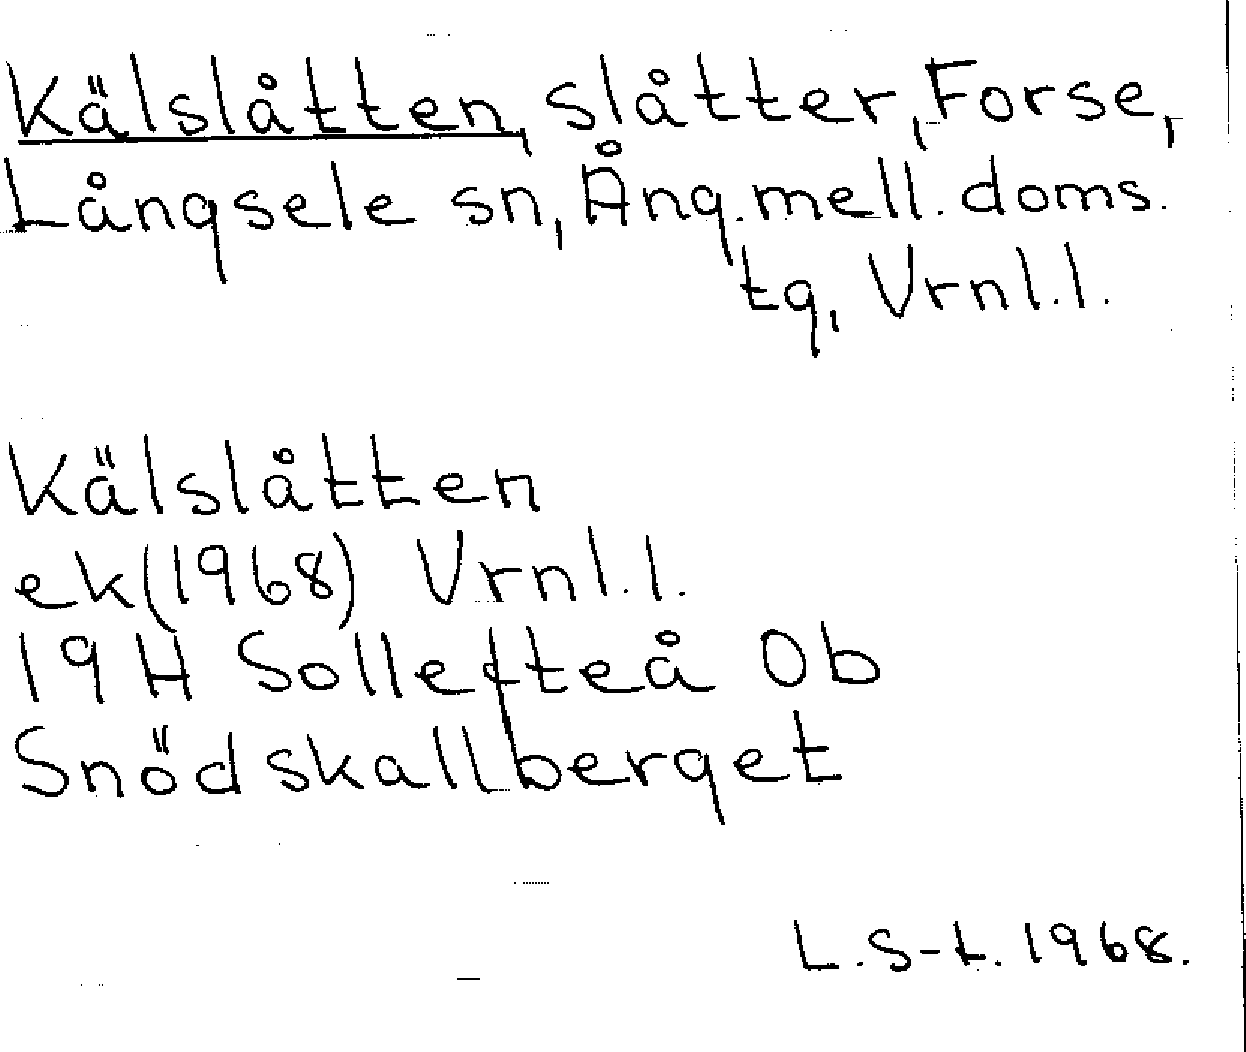 Kälslåtten, slåtter, Forse,
Långsele sn, Ång. mell. doms.
tg, Vrnl. l.
Kälslåtten
ek (1968) Vrnl. l.
19 H Sollefteå 0b
Snödskallberget
L. S-L. 1968.